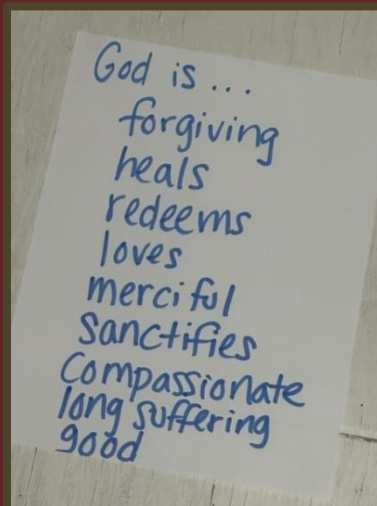 God is ...
forgiving
heals
redeems
loves
merciful
Sanctifies
Compassionate
long suffering
good